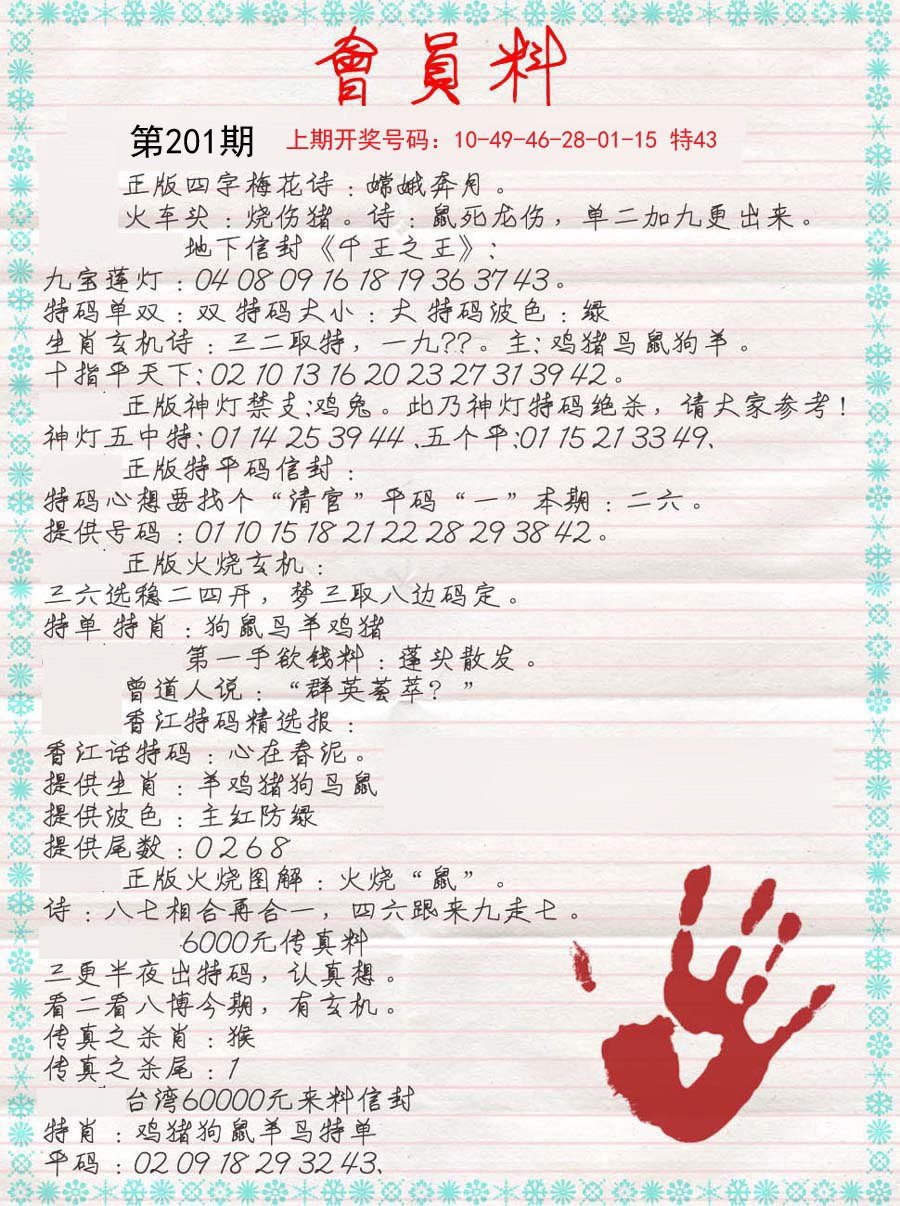 會員料
第201期 上期开奖号码：10-49-46-28-01-15 特43
正版四字梅花诗：嫦娥奔月。
火车头：烧伤猪。诗：鼠死龙伤，单二加九更出来。
地下信封《千王之王》：
九宝莲灯：04 08 09 16 18 19 36 37 43。
特码单双：双 特码大小：大 特码波色：绿
生肖玄机诗：三二取特，一九??。主：鸡猪马鼠狗羊。
十指平天下：02 10 13 16 20 23 27 31 39 42。
正版神灯禁支：鸡兔。此乃神灯特码绝杀，请大家参考！
神灯五中特：01 14 25 39 44 、五个平：01 15 21 33 49、
正版特平码信封：
特码心想要找个“清官”平码“一”本期：二六。
提供号码：01 10 15 18 21 22 28 29 38 42。
正版火烧玄机：
三六选稳二四开，梦三取八边码定。
特单 特肖：狗鼠马羊鸡猪
第一手欲钱料：蓬头散发。
曾道人说：“群英荟萃？”
香江特码精选报：
香江话特码：心在春泥。
提供生肖：羊鸡猪狗马鼠
提供波色：主红防绿
提供尾数：0 2 6 8
正版火烧图解：火烧“鼠”。
诗：八七相合再合一，四六跟来九走七。
6000元传真料
三更半夜出特码，认真想。
看二看八博今期，有玄机。
传真之杀肖：猴
传真之杀尾：1
台湾60000元来料信封
特肖：鸡猪狗鼠羊马特单
平码：02 09 18 29 32 43、